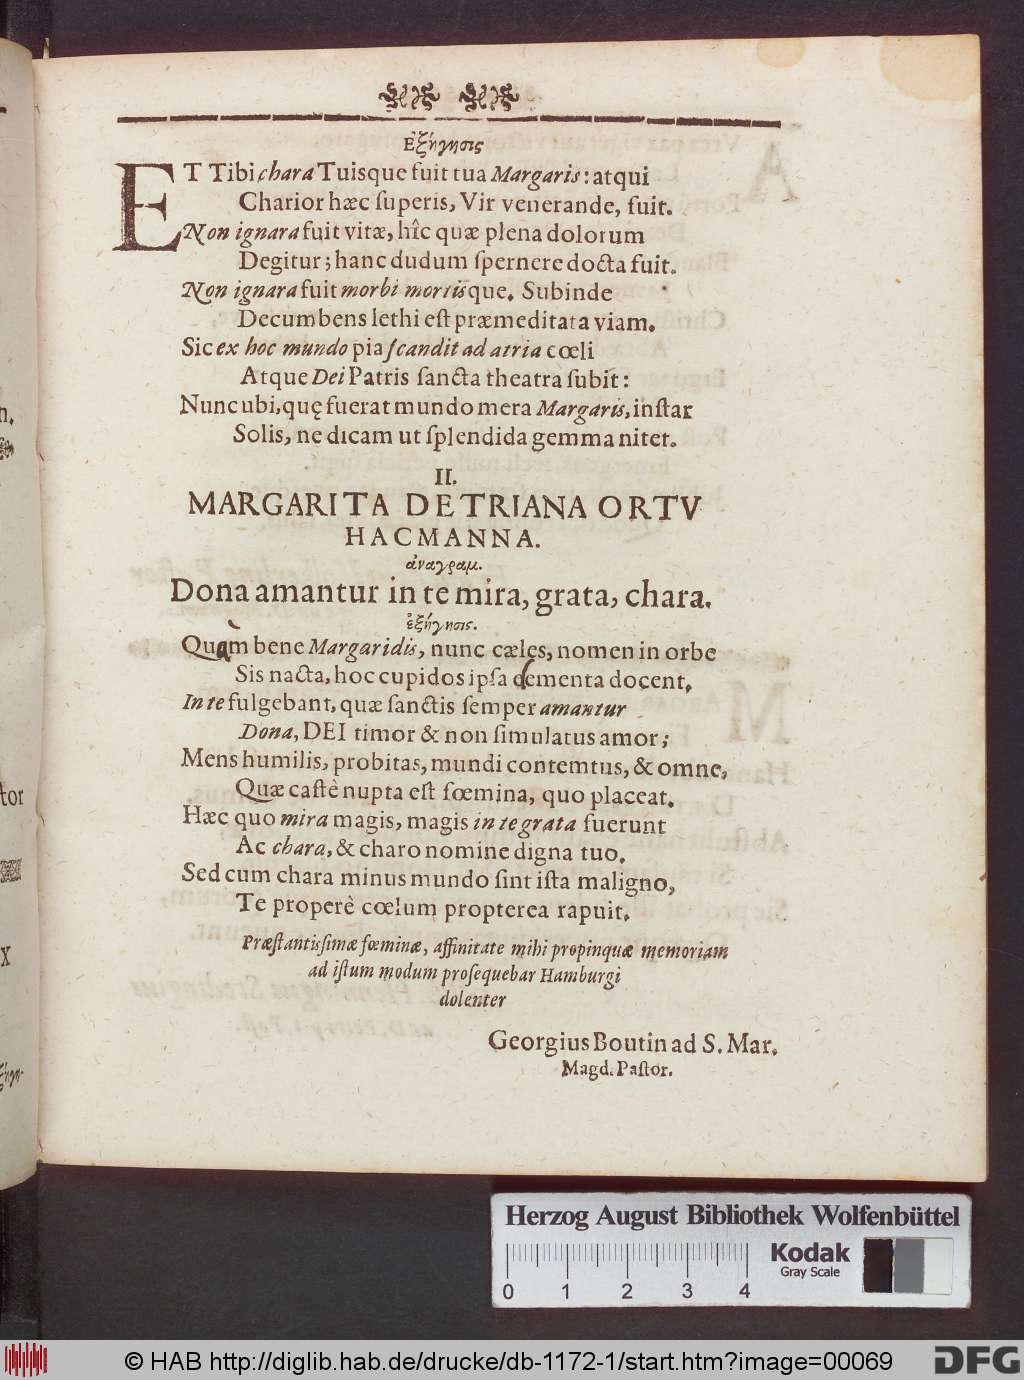 Εξήγησις
ET Tibi chara Tuisque fuit tua Margaris: atqui
Charior hæc ſuperis, Vir venerande, fuit.
Non ignara fuit vitæ, hîc quæ plena dolorum
Degitur; hanc dudum ſpernere docta fuit.
Non ignara fuit morbi mortisque. Subinde
Decumbens lethi eſt præmeditata viam.
Sic ex hoc mundo pia ſcandit ad atria cœli
Atque Dei Patris ſancta theatra ſubit:
Nunc ubi, quę fuerat mundo mera Margaris, inſtar
Solis, ne dicam ut ſplendida gemma nitet.
II.
MARGARITA DETRIANA ORTV
HACMANNA.
ἀναγραμ.
Dona amantur in te mira, grata, chara.
ἐξήγησις.
Quàm bene Margaridis, nunc cæles, nomen in orbe
Sis nacta, hoc cupidos ipſa dementa docent.
In te fulgebant, quæ ſanctis ſemper amantur
Dona, DEI timor & non ſimulatus amor;
Mens humilis, probitas, mundi contemtus, & omne,
Quæ caſtè nupta eſt fœmina, quo placeat.
Hæc quo mira magis, magis in te grata fuerunt
Ac chara, & charo nomine digna tuo.
Sed cum chara minus mundo ſint iſta maligno,
Te properè cœlum propterea rapuit.
Præſtantisſimæ fœminæ, affinitate mihi propinquæ memoriam
ad iſtum modum proſequebar Hamburgi
dolenter
Georgius Boutin ad S. Mar.
Magd. Paſtor.
n.
tor
X
Herzog August Bibliothek Wolfenbüttel
Kodak
Gray Scale
0 1 2 3 4
© HAB http://diglib.hab.de/drucke/db-1172-1/start.htm?image=00069
DFG